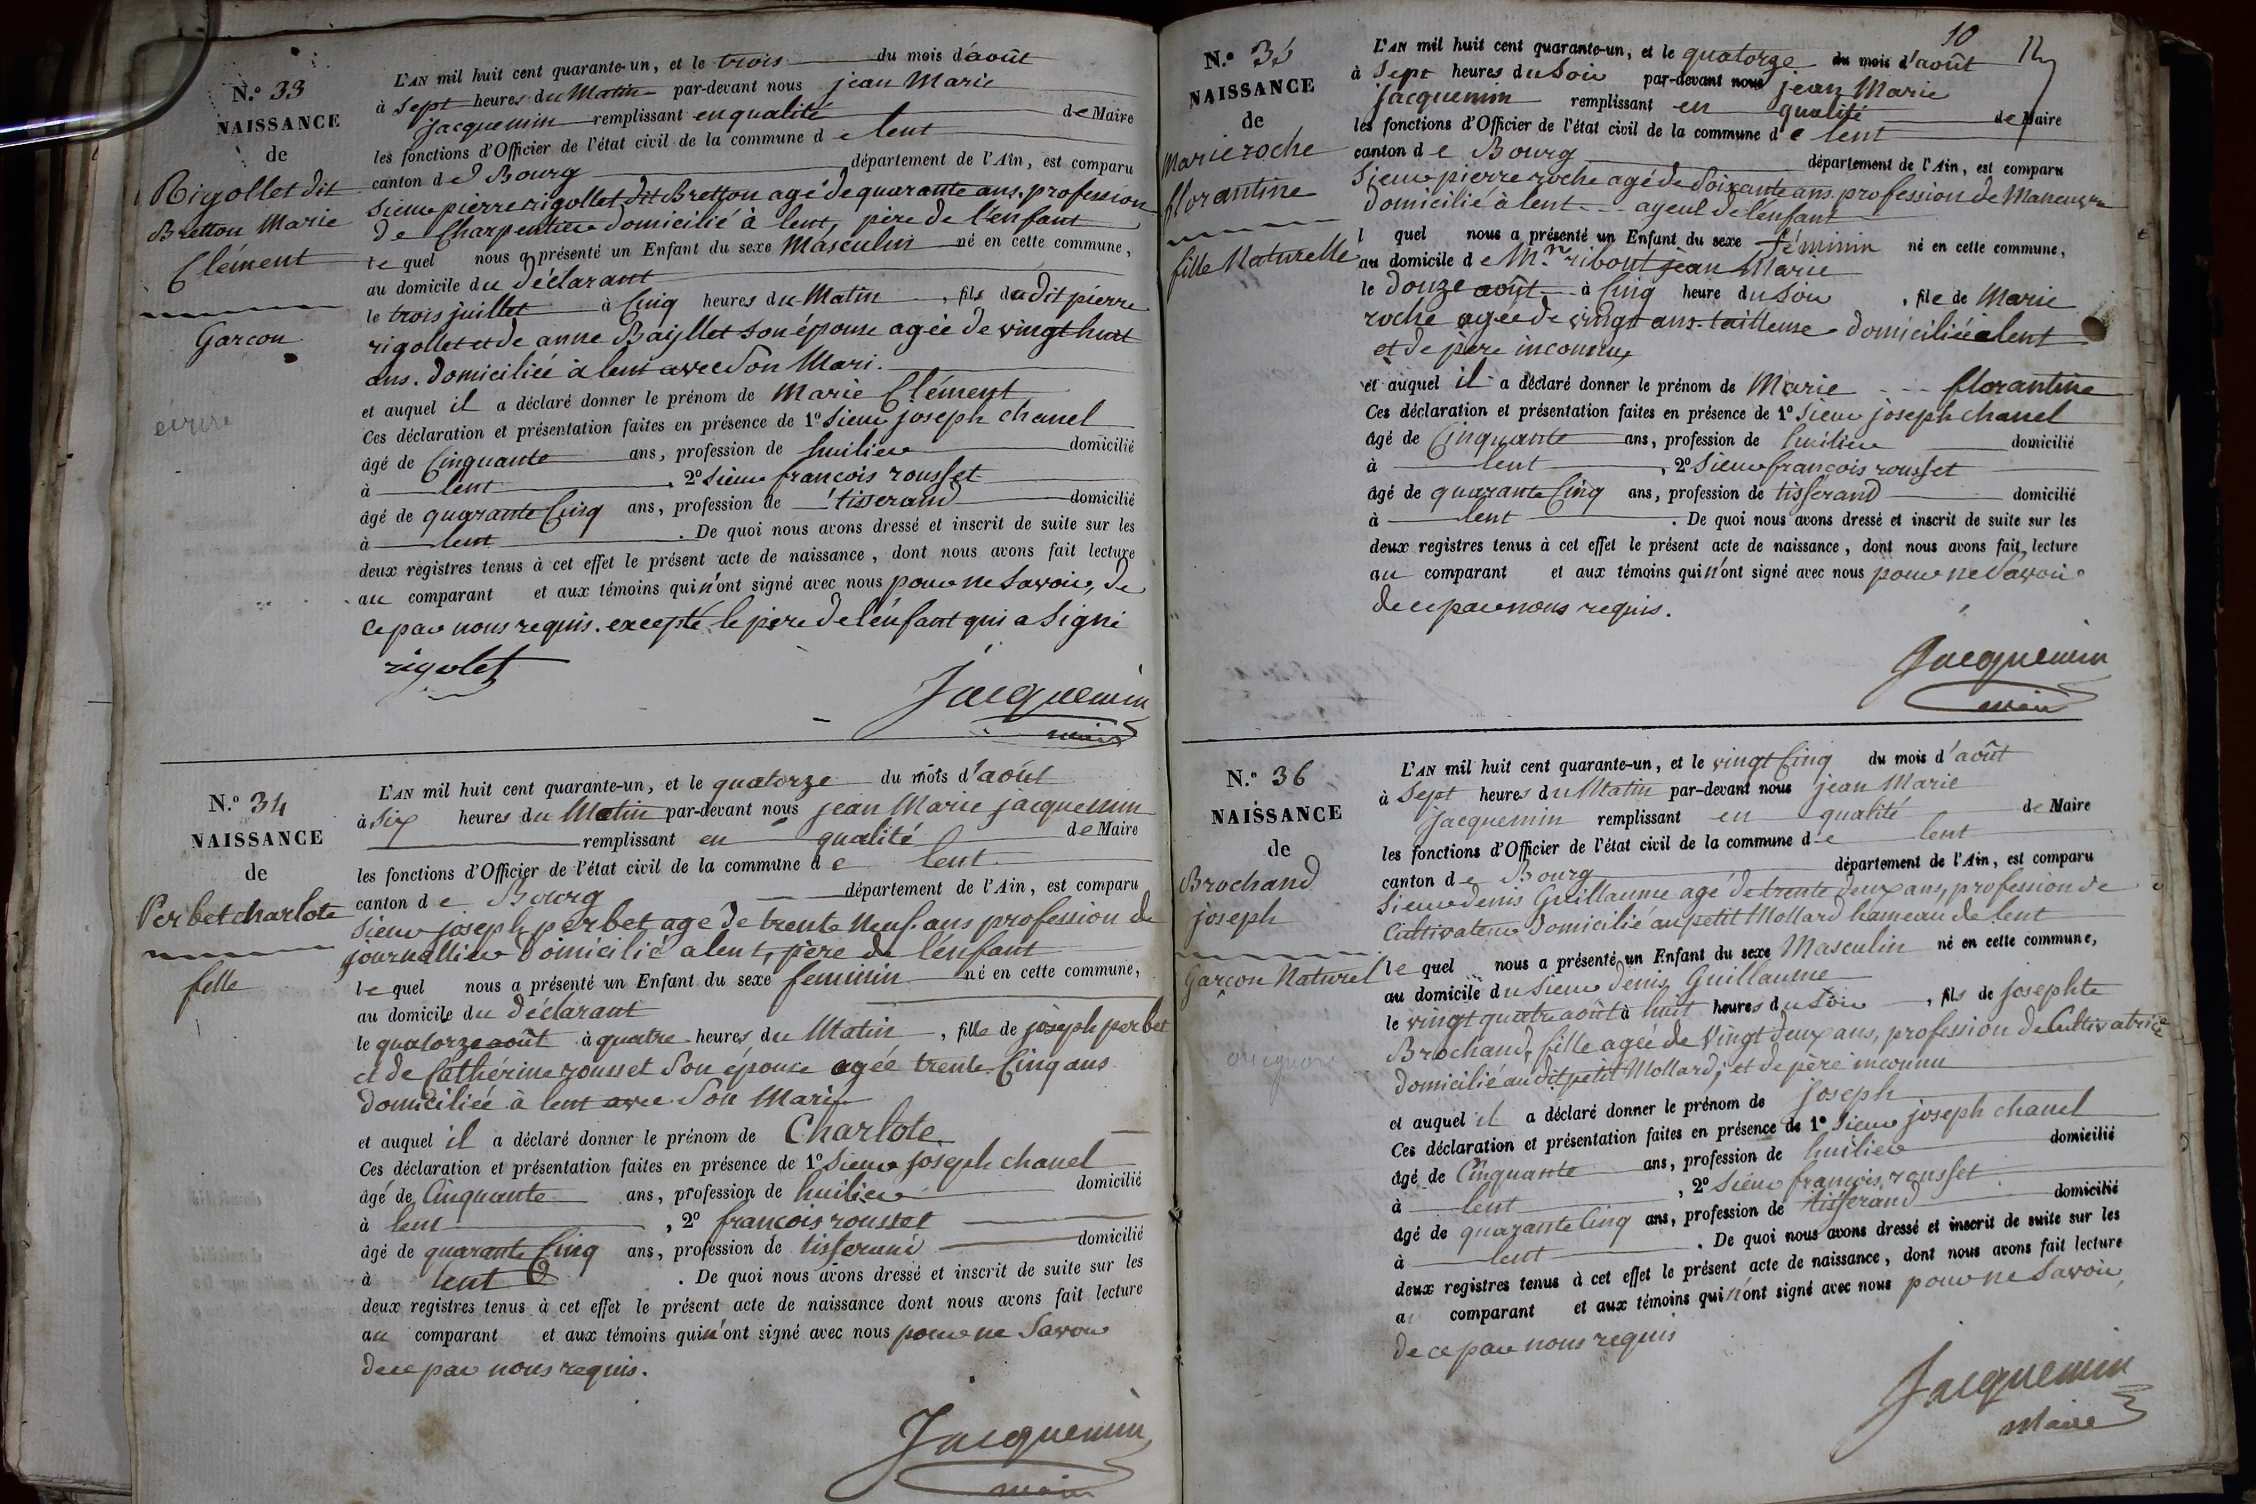 N.º 33
NAISSANCE
de
Rigollet dit
Bretton Marie
Clément
Garcon
L'AN mil huit cent quarante-un, et le trois du mois d'août
à Sept heures du Matin par-devant nous jean Marie
jacquemin remplissant en qualité de Maire
les fonctions d'Officier de l'état civil de la commune de lent
canton de Bourg département de l'Ain, est comparu
Sieur pierre rigollet dit Bretton agé de quarante ans, profession
de Charpentier domicilié à lent, père de l'enfant
le quel nous a présenté un Enfant du sexe Masculin né en cette commune,
au domicile du déclarant
le trois juillet à Cinq heures du Matin, fils dudit pierre
rigollet et de anne Bajllet son épouse agée de vingt huit
ans. domiciliée à lent avec son Mari.
et auquel il a déclaré donner le prénom de Marie Clément
Ces déclaration et présentation faites en présence de 1º Sieur joseph chanel
âgé de Cinquante ans, profession de huilier domicilié
à lent, 2º Sieur francois rousset
âgé de quarante Cinq ans, profession de tisserand domicilié
à lent. De quoi nous avons dressé et inscrit de suite sur les
deux registres tenus à cet effet le présent acte de naissance, dont nous avons fait lecture
au comparant et aux témoins qui n'ont signé avec nous pour ne Savoir, de
ce par nous requis. excepté le père de l'énfant qui a Signé
rigolet
Jacquemin
maire
N.º 34
NAISSANCE
de
Perbet charlote
fille
L'AN mil huit cent quarante-un, et le quatorze du mois d'août
à Six heures du Matin par-devant nous jean Marie jacquemin
remplissant en qualité de Maire
les fonctions d'Officier de l'état civil de la commune de lent
canton de Bourg département de l'Ain, est comparu
Sieur joseph perbet age de trente Neuf ans profession de
journallier domicilié a lent, père de l'énfant
le quel nous a présenté un Enfant du sexe feminin né en cette commune,
au domicile du déclarant
le quatorze août à quatre heures du Matin, fille de joseph perbet
et de Cathérine rousset Son épouse agée trente Cinq ans
domiciliée à lent avec Son Mari
et auquel il a déclaré donner le prénom de Charlote
Ces déclaration et présentation faites en présence de 1º Sieur joseph chanel
âgé de Cinquante ans, profession de huilier domicilié
à lent, 2º francois rousset
âgé de quarante Cinq ans, profession de tisserand domicilié
à lent. De quoi nous avons dressé et inscrit de suite sur les
deux registres tenus à cet effet le présent acte de naissance dont nous avons fait lecture
au comparant et aux témoins qui n'ont signé avec nous pour ne Savoir
de ce par nous requis.
Jacquemin
maire
10
N.º 35
NAISSANCE
de
Marie roche
florantine
fille Naturelle
L'AN mil huit cent quarante-un, et le quatorze du mois d'août
à Sept heures du Soir par-devant nous jean Marie
jacquemin remplissant en qualité de Maire
les fonctions d'Officier de l'état civil de la commune de lent
canton de Bourg département de l'Ain, est comparu
Sieur pierre roche agé de Soixante ans profession de Maneuvre
domicilié à lent ayeul de l'énfant
l quel nous a présenté un Enfant du sexe féminin né en cette commune,
au domicile de Mr ribout jean Marie
le douze août à Cinq heure du Soir, fille de Marie
roche agée de vingt ans tailleuse domiciliée a lent
et de père inconnu
et auquel il a déclaré donner le prénom de Marie florantine
Ces déclaration et présentation faites en présence de 1º Sieur joseph chanel
âgé de Cinquante ans, profession de huilier domicilié
à lent, 2º Sieur francois rousset
âgé de quarante Cinq ans, profession de tisserand domicilié
à lent. De quoi nous avons dressé et inscrit de suite sur les
deux registres tenus à cet effet le présent acte de naissance, dont nous avons fait lecture
au comparant et aux témoins qui n'ont signé avec nous pour ne Savoir
de ce par nous requis.
Jacquemin
maire
N.º 36
NAISSANCE
de
Brochand
joseph
Garçon Naturel
L'AN mil huit cent quarante-un, et le vingt Cinq du mois d'août
à Sept heures du Matin par-devant nous jean Marie
jacquemin remplissant en qualité de Maire
les fonctions d'Officier de l'état civil de la commune de lent
canton de Bourg département de l'Ain, est comparu
Sieur denis Guillaume agé de trente deux ans, profession de
Cultivateur domicilié au petit Mollard hameau de lent
le quel nous a présenté un Enfant du sexe Masculin né en cette commune,
au domicile du Sieur denis Guillaume
le vingt quatre août à huit heures du Soir, fils de josephte
Brochand, fille agée de Vingt deux ans, profession de Cultivatrice
domicilié au dit petit Mollard, et de père inconnu
et auquel il a déclaré donner le prénom de joseph
Ces déclaration et présentation faites en présence de 1º Sieur joseph chanel
âgé de Cinquante ans, profession de huilier domicilié
à lent, 2º Sieur francois rousset
âgé de quarante Cinq ans, profession de tisserand domicilié
à lent. De quoi nous avons dressé et inscrit de suite sur les
deux registres tenus à cet effet le présent acte de naissance, dont nous avons fait lecture
a comparant et aux témoins qui n'ont signé avec nous pour ne Savoir,
de ce par nous requis
Jacquemin
Maire